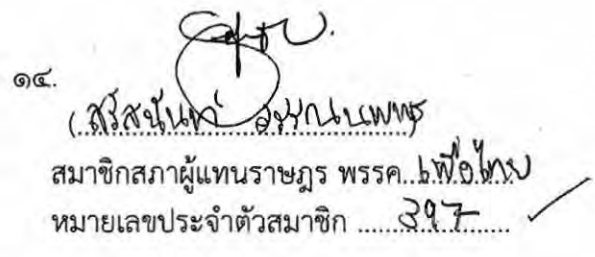 ๑๔.
(สรัสนันท์ อรรณนพพร)
สมาชิกสภาผู้แทนราษฎร พรรค..เพื่อไทย
หมายเลขประจำตัวสมาชิก ......397......